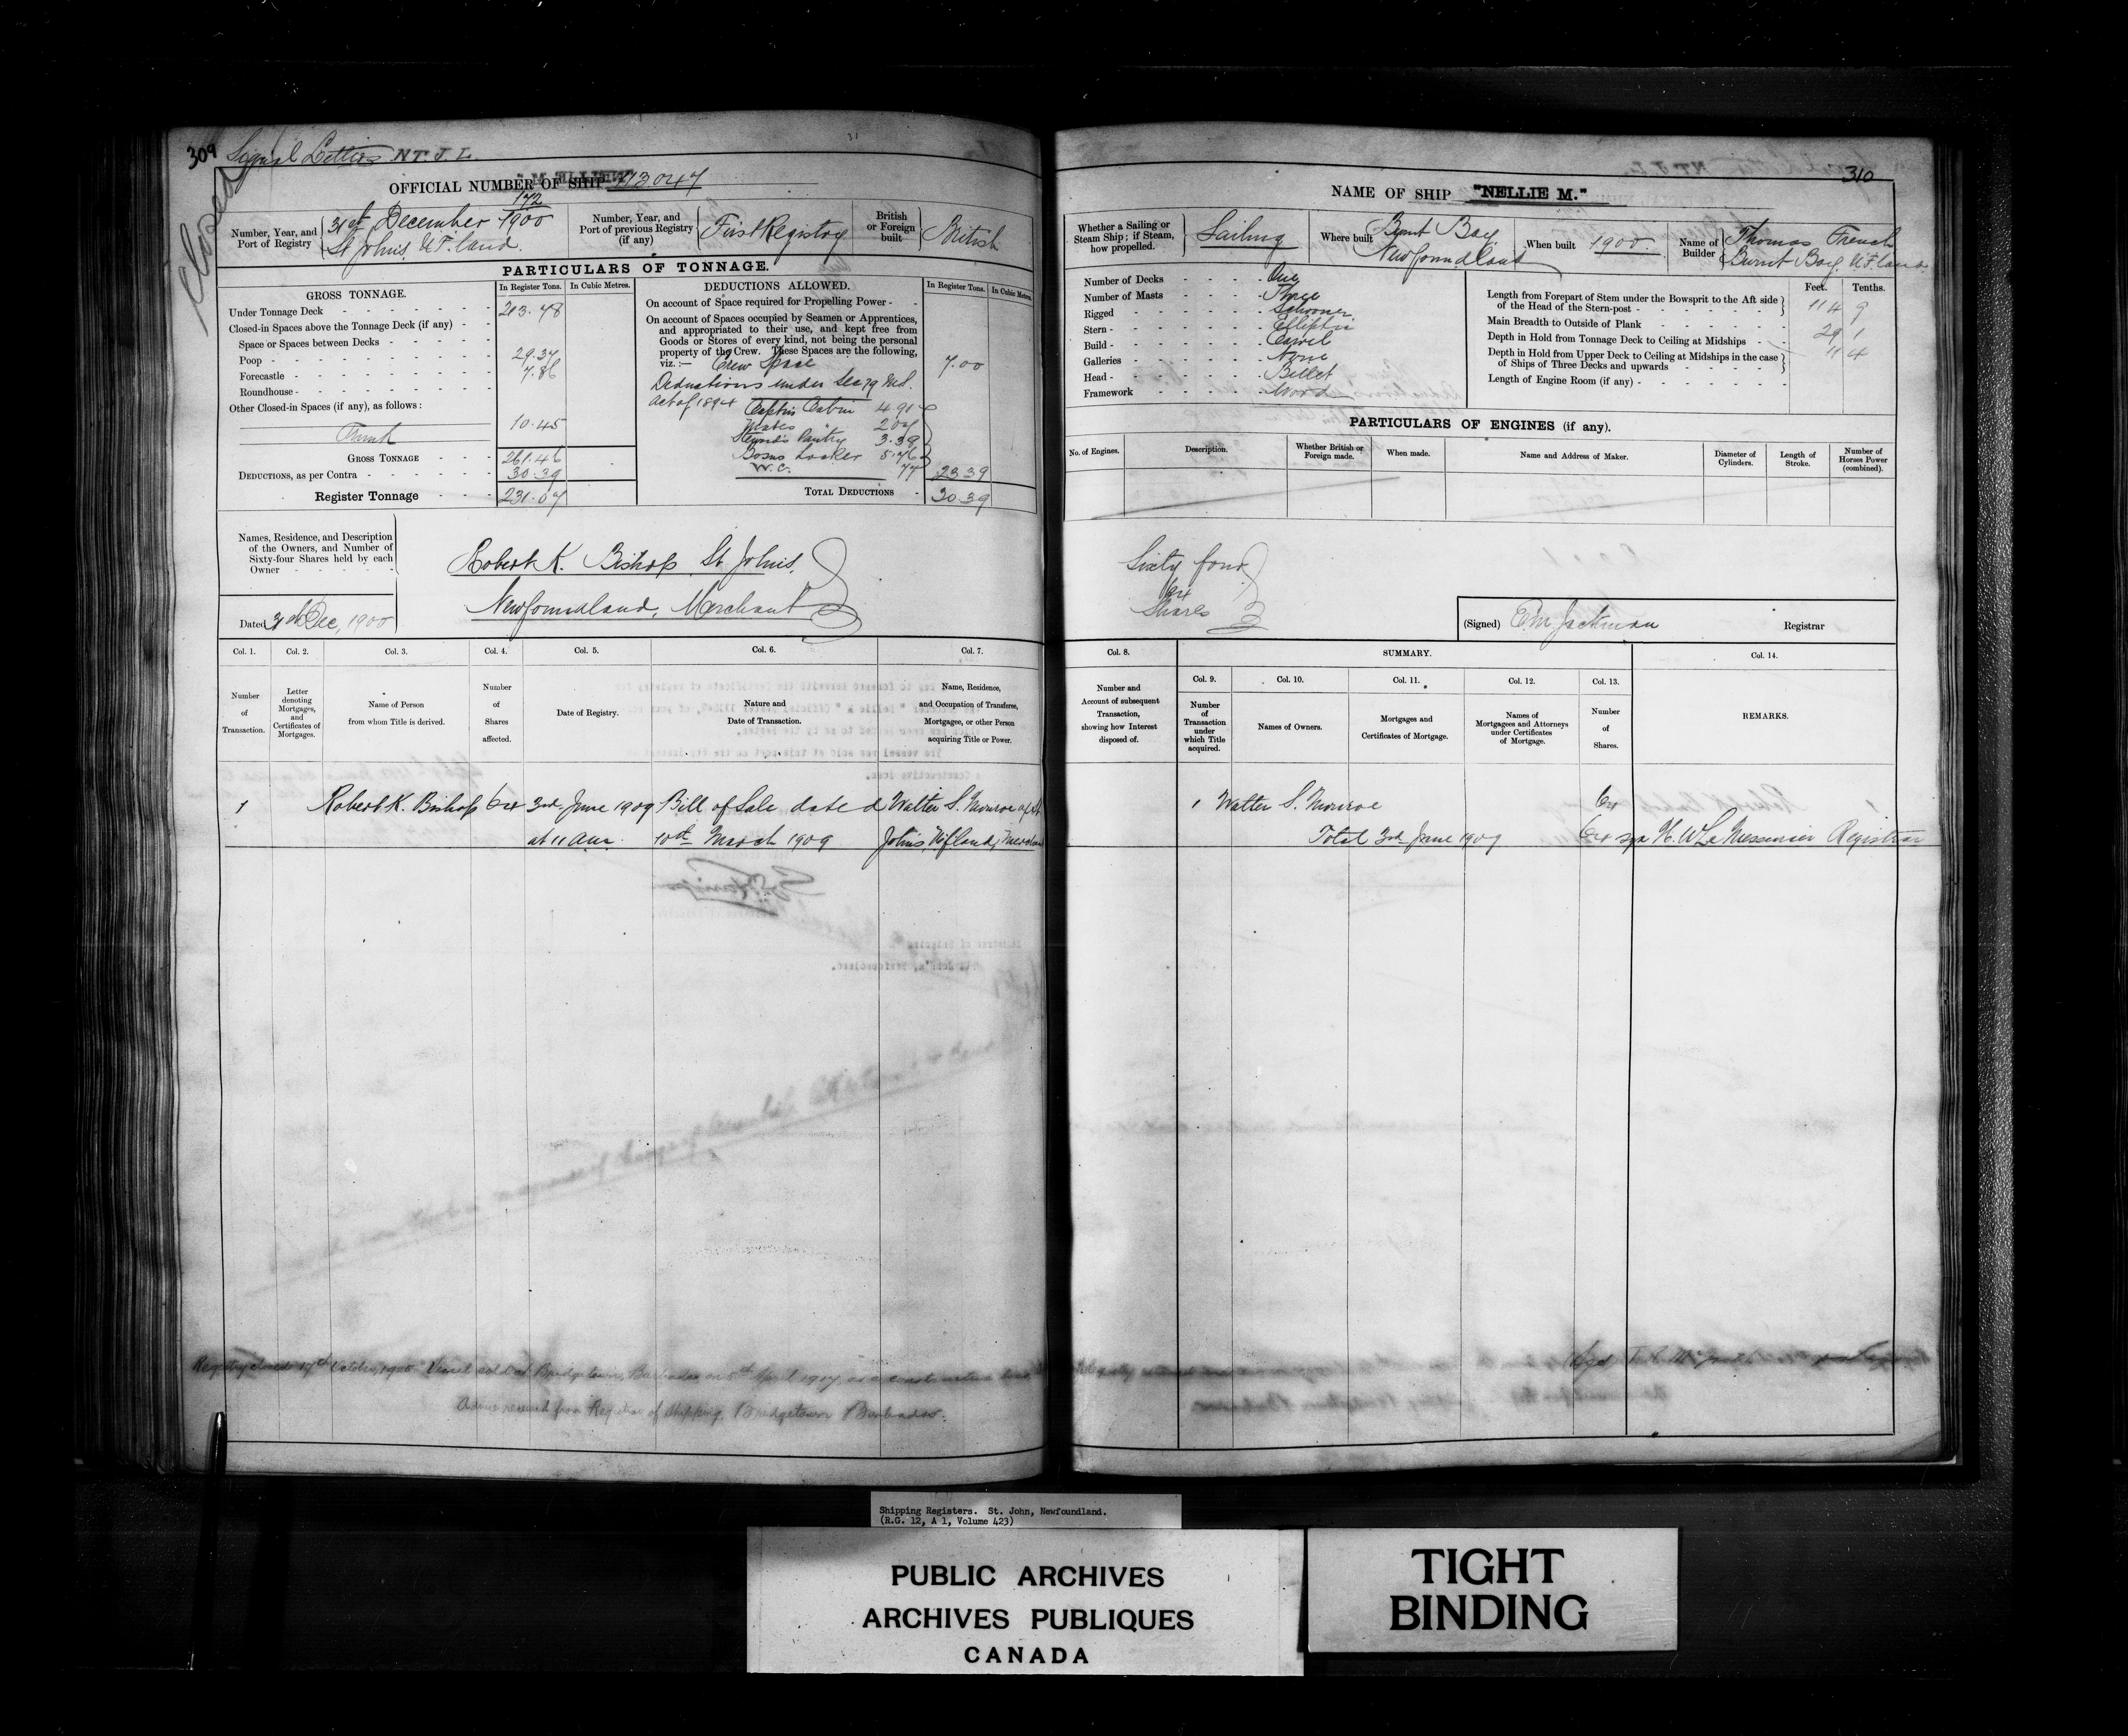 309 Signal Letters N.T.J.L.
Closed
OFFICIAL NUMBER OF SHIP 113047
172
Number, Year, and Port of Registry
31st December 1900
St Johns N.F.land.
Number, Year, and Port of previous Registry (if any)
First Registry
British or Foreign built
British
PARTICULARS OF TONNAGE.
GROSS TONNAGE.
In Register Tons. In Cubic Metres.
Under Tonnage Deck 213.78
Closed-in Spaces above the Tonnage Deck (if any)
Space or Spaces between Decks
Poop 29.37
Forecastle 7.86
Roundhouse
Other Closed-in Spaces (if any), as follows:
Trunk 10.45
GROSS TONNAGE 261.46
DEDUCTIONS, as per Contra 30.39
Register Tonnage 231.07
DEDUCTIONS ALLOWED.
In Register Tons. In Cubic Metres.
On account of Space required for Propelling Power
On account of Spaces occupied by Seamen or Apprentices,
and appropriated to their use, and kept free from
Goods or Stores of every kind, not being the personal
property of the Crew. These Spaces are the following,
viz.:— Crew Space 7.00
Deductions under Sec 79 M.S.
Act of 1894 Captns Cabin 4.91
Mates " 
Stewards Pantry 3.39
Bosns Locker 5.76
W.C. 
23.39
TOTAL DEDUCTIONS 30.39
Names, Residence, and Description
of the Owners, and Number of
Sixty-four Shares held by each
Owner
Dated 31st Dec, 1900
Robert K. Bishop St Johns,
Newfoundland, Merchant
Col. 1. Col. 2. Col. 3. Col. 4. Col. 5. Col. 6. Col. 7.
Number of Transaction.
Letter denoting Mortgages, and Certificates of Mortgages.
Name of Person from whom Title is derived.
Number of Shares affected.
Date of Registry.
Nature and Date of Transaction.
Name, Residence, and Occupation of Transferee, Mortgagee, or other Person acquiring Title or Power.
1 Robert K. Bishop 64 3rd June 1909 Bill of Sale dated Walter S. Monroe of St.
at 11 am. 10th March 1909 Johns, Nfland, Merchant
Registry closed 17th October, Vessel sold at Bridgetown, Barbados on 5th April 1917, as a constructive loss,
Advice received from Registrar of Shipping, Bridgetown Barbados.
310
NAME OF SHIP "NELLIE M."
Whether a Sailing or Steam Ship; if Steam, how propelled.
Sailing
Where built
Burnt Bay
Newfoundland
When built 1900
Name of Builder
Thomas French
Burnt Bay. N.F.land
Number of Decks One
Number of Masts Three
Rigged Schooner
Stern Elliptic
Build Carvel
Galleries None
Head Billet
Framework Wood
Feet. Tenths.
Length from Forepart of Stem under the Bowsprit to the Aft side
of the Head of the Stern-post 114 9
Main Breadth to Outside of Plank 29 1
Depth in Hold from Tonnage Deck to Ceiling at Midships 11 4
Depth in Hold from Upper Deck to Ceiling at Midships in the case
of Ships of Three Decks and upwards
Length of Engine Room (if any)
PARTICULARS OF ENGINES (if any).
No. of Engines.
Description.
Whether British or Foreign made.
When made.
Name and Address of Maker.
Diameter of Cylinders.
Length of Stroke.
Number of Horses Power (combined).
Sixty four
64
Shares
(Signed) E M Jackman Registrar
Col. 8.
SUMMARY.
Col. 14.
Col. 9. Col. 10. Col. 11. Col. 12. Col. 13.
Number and Account of subsequent Transaction, showing how Interest disposed of.
Number of Transaction under which Title acquired.
Names of Owners.
Mortgages and Certificates of Mortgage.
Names of Mortgagees and Attorneys under Certificates of Mortgage.
Number of Shares.
REMARKS.
1 Walter S. Monroe 64
Total 3rd June 1909 64 sgn H. W. LeMessurier Registrar
Shipping Registers. St. John, Newfoundland.
(R.G. 12, A 1, Volume 423)
PUBLIC ARCHIVES
ARCHIVES PUBLIQUES
CANADA
TIGHT
BINDING